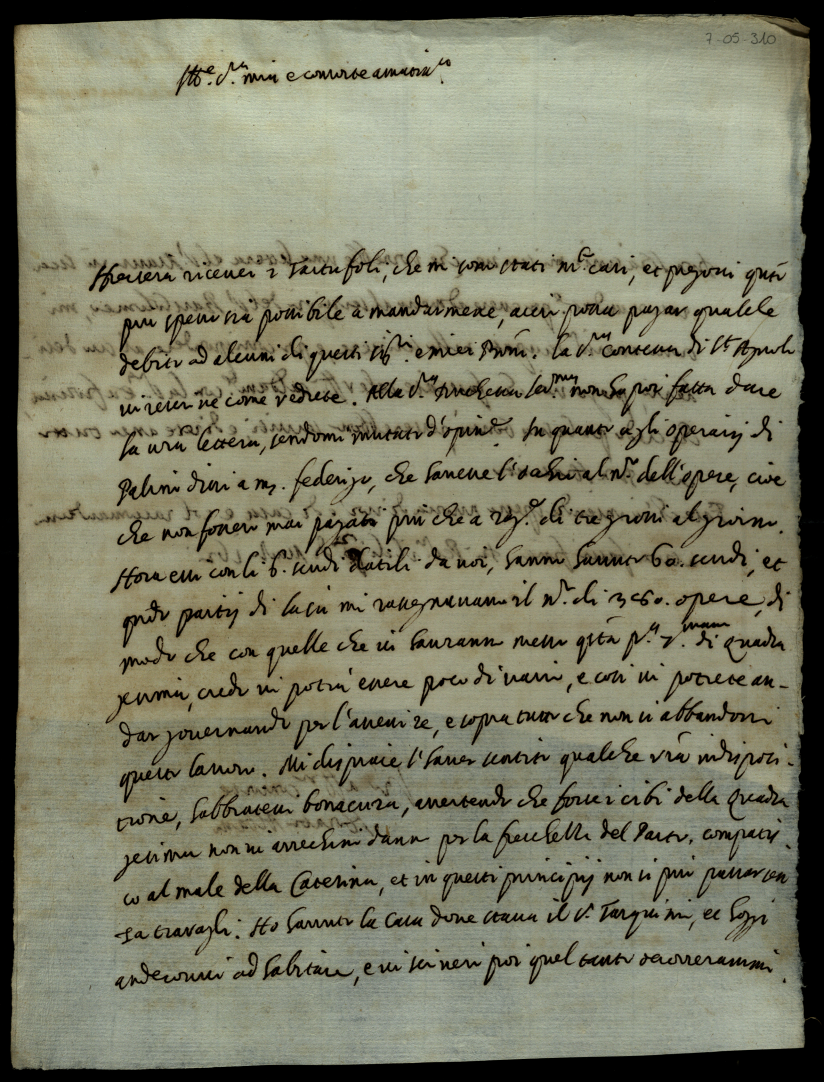 7-05-310
Ill.e S.ra mia e consorte amatiss.
Hiersera ricevei i Tartufoli, che mi sono stati m.to cari, et pregovi q.to
più spesso sia possibile a mandarmene, acciò possa pagar qualche
debito ad alcuni di questi e miei Proni. la S.ra Contessa di S.t Agnolo
vi scrive come vedrete. Alla S.ra Duchessa Ser.ma non ho poi fatta dare
la vra lettera, sendomi mutato d'opin.e In quanto agli operarij di
Palmi dissi a m. federigo, che havesse l'ochio al n.o dell'opere, cioè
che non fossero mai pagati più che a rag.e di tre grossi al giorno.
Hora essi con li 6. scudi datili da voi, hanno havuto 60. scudi, et
q.do partij di lasù mi rassegnavano il n.o di 3 opere, di
modo che con quelle che vi havranno messo q.sta p.a di Quadra
gesima, credo vi potrà essere poco di vario, e così vi potrete an-
dar governando per l'avvenire, e sopra tutto che non si abbandoni
questo lavoro. Mi dispiace l'haver sentito qualche vra indisposi-
tione, habbiatevi bona cura, avvertendo che forse i cibi della Quadra
gesima non vi arrechino danno per la freschezza del Parto, compatis-
co al male della Caterina, et in questi principij non si può passar sen
za travagli. Ho havuto la casa dove stava il S.r Tarquini, et hoggi
anderovvi ad habitare, e vi scriverò poi quel tanto occorrerammi.